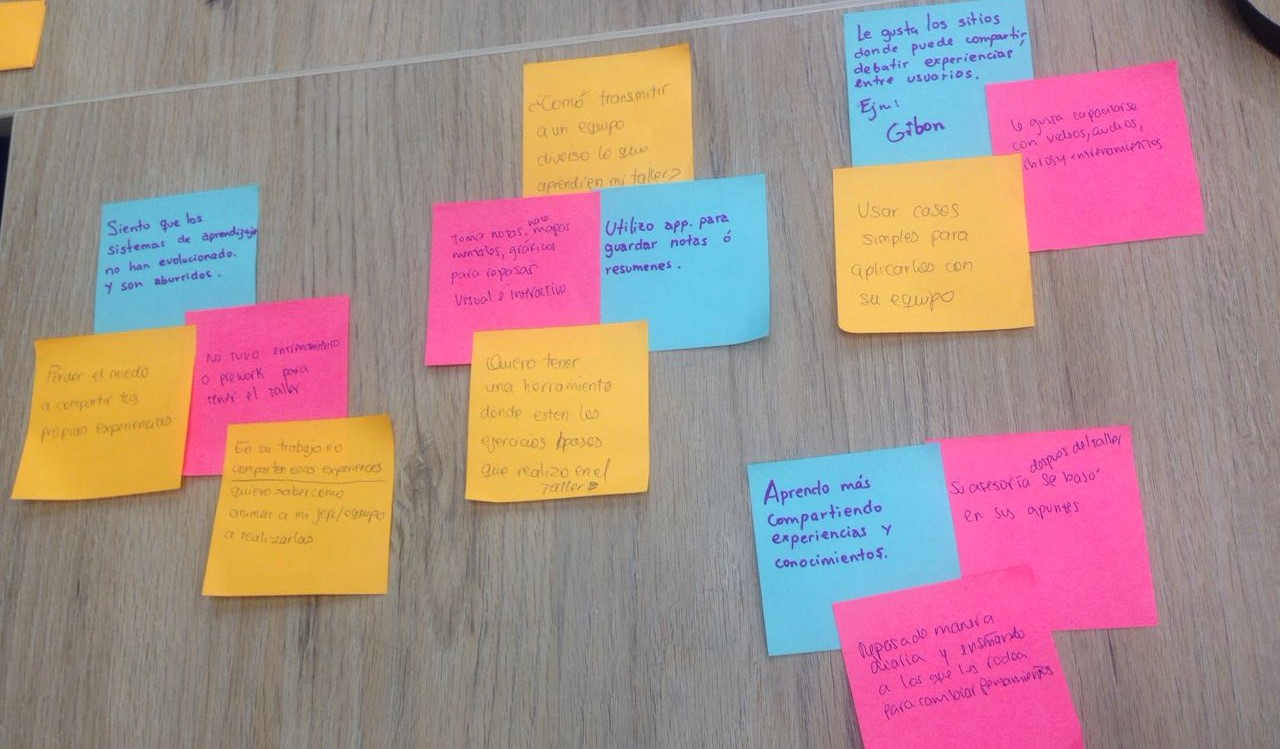 Siento que los
sistemas de aprendizaje
no han evolucionado.
y son aburridos.
Perder el miedo
a compartir tus
propias experiencias
No tuvo entrenamiento
o prework para
tener el taller
En su trabajo no
comparten esas experiencias
quiero saber como
animar a mi jefe/equipo
a realizarlas
¿Como transmitir
a un equipo
diverso lo que
aprendi en mi taller?
Toma notas, hace mapas
mentales, gráficos
para repasar
visual e interactivo
Utilizo app. para
guardar notas ó
resumenes.
Quiero tener
una herramienta
donde esten los
ejercicios pasos
que realizo en el
taller
Le gusta los sitios
donde puede compartir,
debatir experiencias
entre usuarios.
Ejm:
Gibon
le gusta capacitarse
con videos, audios,
libros y entrenamientos
Usar casos
simples para
aplicarlos con
su equipo
Aprendo más
compartiendo
experiencias y
conocimientos.
después del taller
Su asesoría se basó
en sus apuntes
manera
diaria y enseñando
a los que los rodea
para cambiar pensamientos